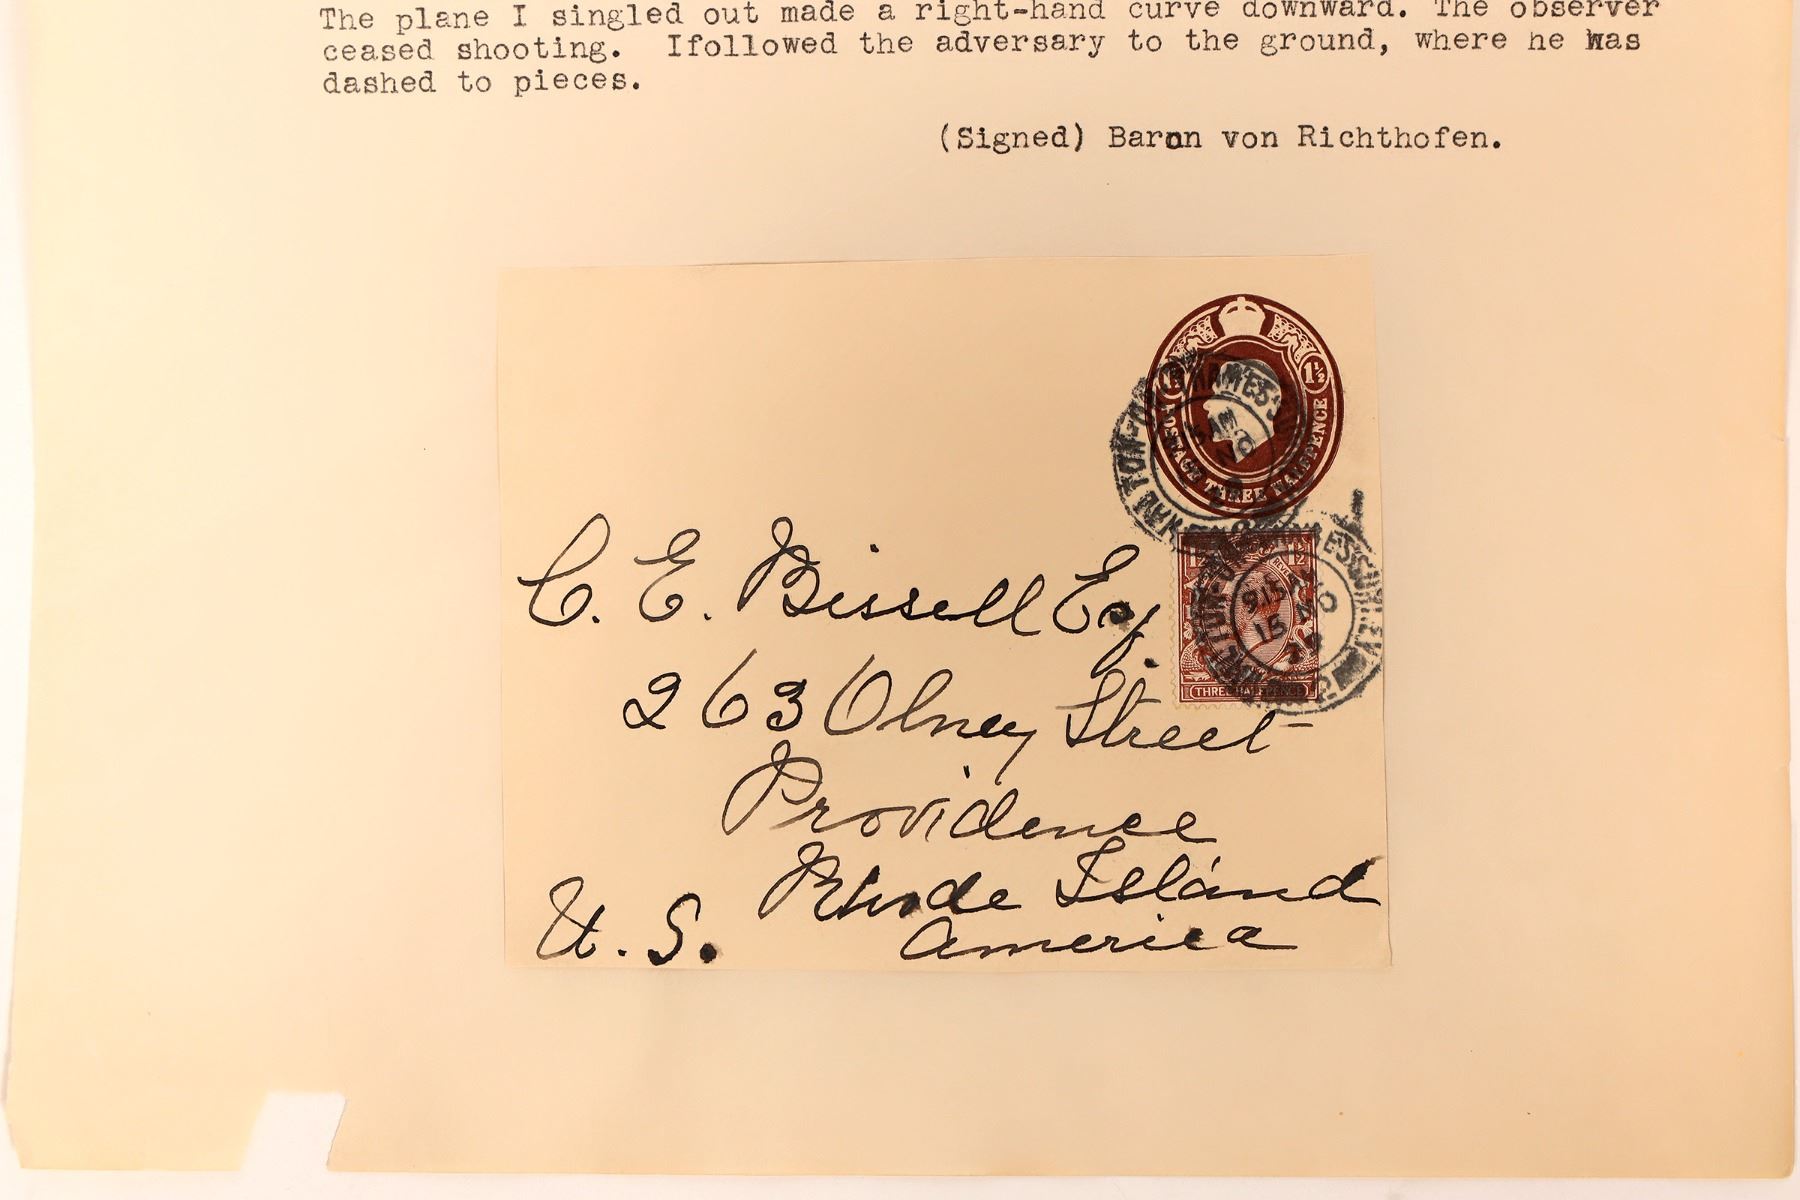 The plane I singled out made a right-hand curve downward. The observer
ceased shooting. Ifollowed the adversary to the ground, where he was
dashed to pieces.
(Signed) Baron von Richthofen.
1½
POSTAGE THREE HALFPENCE
C. E. Bissell Esq
THREE HALFPENCE
9 15 AM
15 NO
263 Olney Street
Providence
Rhode Island
U. S. America